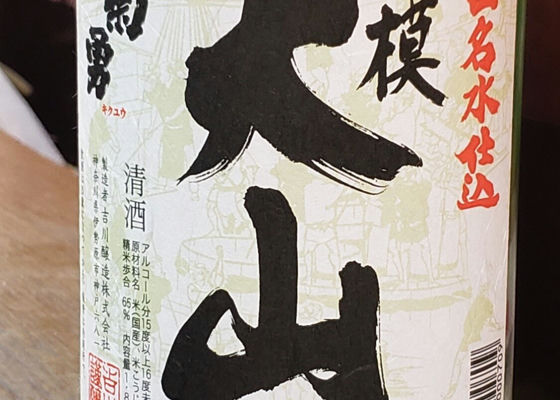 名水仕込
模
大山
菊勇
キクユウ
清酒
アルコール分15度以上16度未
原材料名 米(国産)、米こうじ
精米歩合 65% 内容量1,8
製造者 吉川醸造株式会社
神奈川県伊勢原市神戸六八一